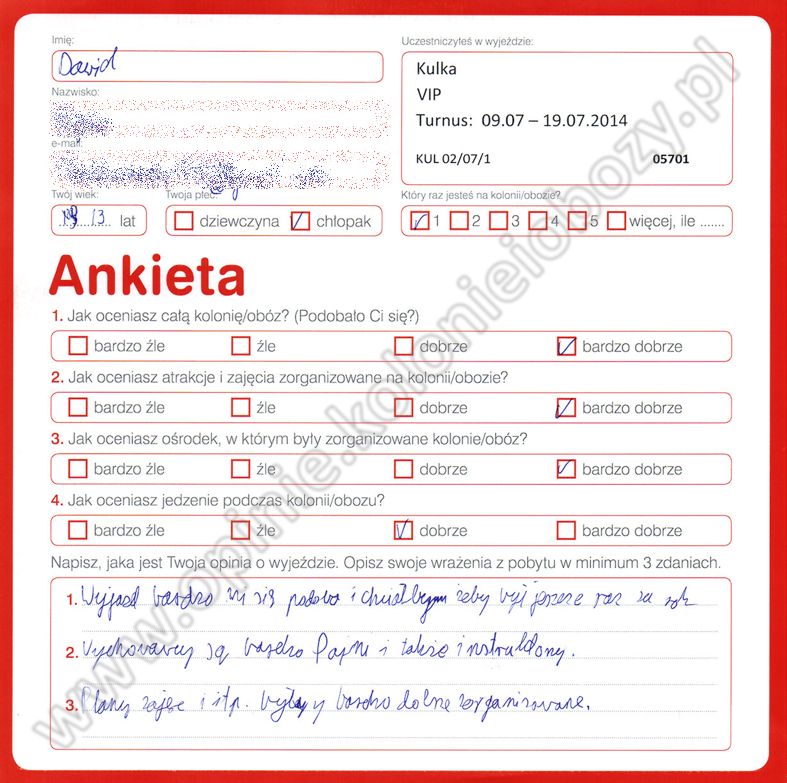 Imię:
Dawid
Uczestniczyłeś w wyjeździe:
Kulka
VIP
Turnus: 09.07 – 19.07.2014
KUL 02/07/1 05701
Nazwisko:
e-mail:
Twój wiek:
13 lat
Twoja płeć:
dziewczyna chłopak
Który raz jesteś na kolonii/obozie?
1 2 3 4 5 więcej, ile .......
Ankieta
1. Jak oceniasz całą kolonię/obóz? (Podobało Ci się?)
bardzo źle źle dobrze bardzo dobrze
2. Jak oceniasz atrakcje i zajęcia zorganizowane na kolonii/obozie?
bardzo źle źle dobrze bardzo dobrze
3. Jak oceniasz ośrodek, w którym były zorganizowane kolonie/obóz?
bardzo źle źle dobrze bardzo dobrze
4. Jak oceniasz jedzenie podczas kolonii/obozu?
bardzo źle źle dobrze bardzo dobrze
Napisz, jaka jest Twoja opinia o wyjeździe. Opisz swoje wrażenia z pobytu w minimum 3 zdaniach.
1. Wyjazd bardzo mi się podoba i chciałbym żeby był jeszcze raz za rok
2. Wychowawcy są bardzo fajni i także instruktorzy.
3. Plany zajęć i itp. były bardzo dobrze zorganizowane.
www.opinie.kolonieiobozy.pl